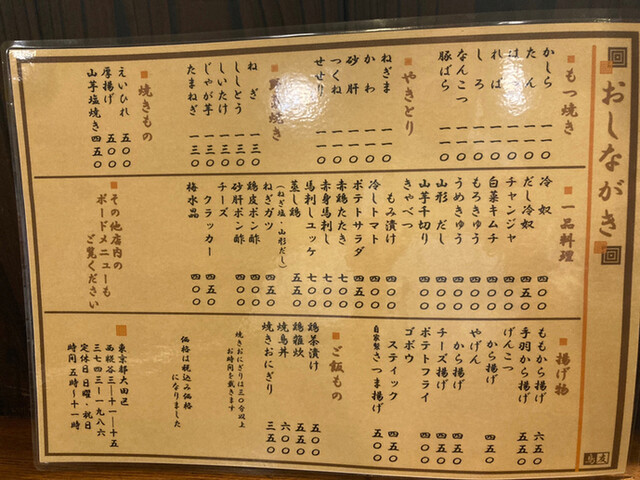 おしながき
もつ焼き
かしら 一一〇
たん 一一〇
はつ 一一〇
ればー 一一〇
しろ 一一〇
なんこつ 一一〇
豚ばら 一一〇
やきとり
ねぎま 一一〇
かわ 一一〇
砂肝 一一〇
つくね 一一〇
せせり 一一〇
野菜焼き
ねぎ 一三〇
ししとう 一三〇
しいたけ 一三〇
じゃが芋 一三〇
たまねぎ 一三〇
焼きもの
えいひれ 五〇〇
厚揚げ 五〇〇
山芋塩焼き 四五〇
一品料理
冷奴 四〇〇
だし冷奴 四五〇
チャンジャ 四〇〇
白菜キムチ 四〇〇
もろきゅう 四〇〇
うめきゅう 四〇〇
山形だし 四〇〇
山芋千切り 四〇〇
きゃべつ
もみ漬け 四〇〇
冷しトマト 四〇〇
ポテトサラダ 四五〇
赤鶏たたき 七〇〇
赤身馬刺し 七〇〇
馬刺しユッケ 七〇〇
蒸し鶏 五五〇
(ねぎ塩・山形だし)
ねぎガツ 四五〇
鶏皮ポン酢 四〇〇
砂肝ポン酢 四〇〇
チーズ
クラッカー 四五〇
梅水晶 四〇〇
その他店内の
ボードメニューも
ご覧ください
揚げ物
ももから揚げ 六五〇
手羽から揚げ 五五〇
げんこつ
から揚げ 四五〇
やげん
から揚げ 四五〇
チーズ揚げ 四五〇
ポテトフライ 四五〇
ゴボウ
スティック 四五〇
自家製さつま揚げ 五五〇
ご飯もの
鶏茶漬け 五〇〇
鶏雑炊 五五〇
焼鳥丼 六〇〇
焼きおにぎり 三五〇
焼きおにぎりは三〇分以上
お時間を戴きます
価格は税込み価格
になりました
東京都大田区
西糀谷三―十一―十五
三七四三―一九八六
定休日 日曜・祝日
時間 五時〜十一時